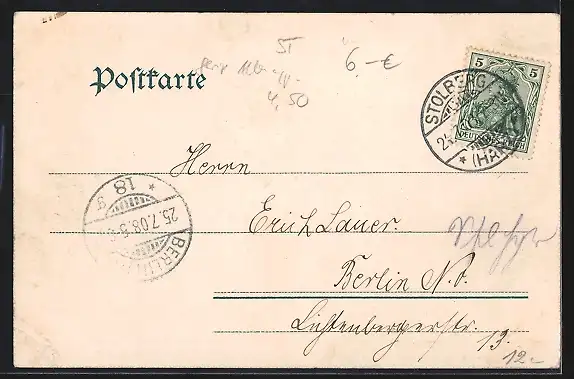 ST
6.-€
4,50
Postkarte
5 5
DEUTSCHES REICH
STOLBERG
24.
* (HARZ)
Herrn
* 18 g
25.7.08.8-9
BERLIN
Erich Lauer.
Berlin N.O.
Lichtenbergerstr. 13.
12.-